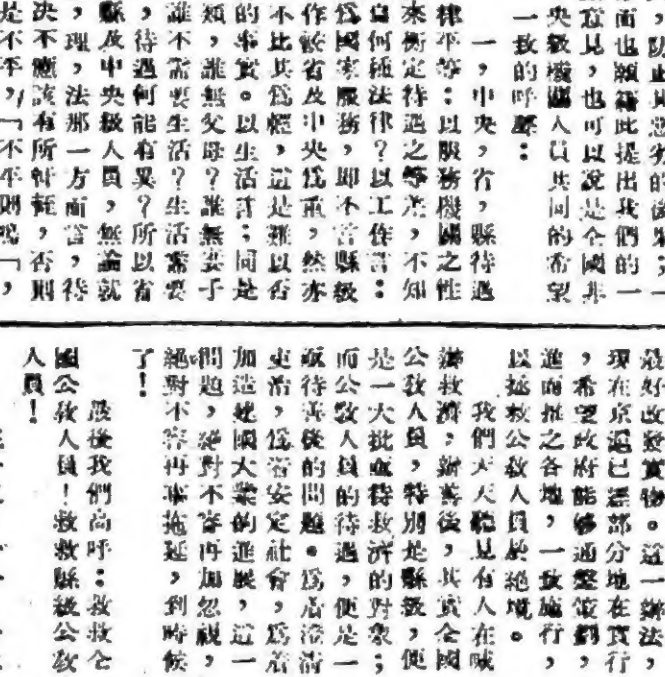 ，防止其惡劣的後果；一
面也願藉此提出我們的一
意見，也可以說是全國非
央級機關人員共同的希望
一致的呼聲：
一，中央，省，縣待遇
律平等：以服務機關之性
來衡定待遇之等差，不知
自何種法律？以工作言：
爲國家服務，即不言縣級
作較省及中央爲重，然亦
不比其爲輕，這是難以否
的事實。以生活言；同是
類，誰無父母？誰無妻子
誰不需要生活？生活需要
，待遇何能有異？所以省
縣及中央級人員，無論就
，理，法那一方面言，待
決不應該有所軒輊，否則
是不平，「不平則鳴「，
最好改發實物。這一辦法，
現在京滬已經部分地在實行
，希望政府能够通盤籌劃，
進而推之各地，一致施行，
以拯救公教人員於絕境。
我們天天聽見有人在喊
救濟，辦善後，其實全國
公教人員，特別是縣級，便
是一大批亟待救濟的對象；
而公教人員的待遇，便是一
亟待善後的問題。爲肅清
吏治，爲着安定社會，爲着
加速建國大業的進展，這一
問題，絕對不容再加忽視，
絕對不容再事拖延，到時候
了！
最後我們高呼：救救全
國公教人員！救救縣級公教
人員！